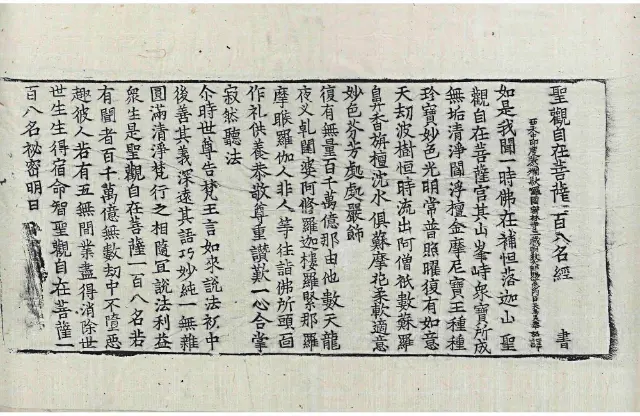 聖觀自在菩薩一百八名經 書
如是我聞一時佛在補怛落迦山聖
觀自在菩薩宮其山峯峙衆寶所成
無垢清淨閻浮檀金摩尼寶王種種
珍寶妙色光明常普照曜復有如意
天劫波樹恒時流出阿僧祇數蘇羅
鼻香旃檀沈水俱蘇摩花柔軟適意
妙色芬芳處處嚴飾
復有無量百千萬億那由他數天龍
夜叉乹闥婆阿修羅迦樓羅緊那羅
摩睺羅伽人非人等往詣佛所頭面
作礼供養恭敬尊重讚歎一心合掌
寂然聽法
尒時世尊告梵王言如來說法初中
後善其義深遠其語巧妙純一無雜
圓滿清淨梵行之相隨宜說法利益
衆生是聖觀自在菩薩一百八名若
有聞者百千萬億無數劫中不墮惡
趣彼人若有五無間業盡得消除世
世生生得宿命智聖觀自在菩薩一
百八名祕密明曰